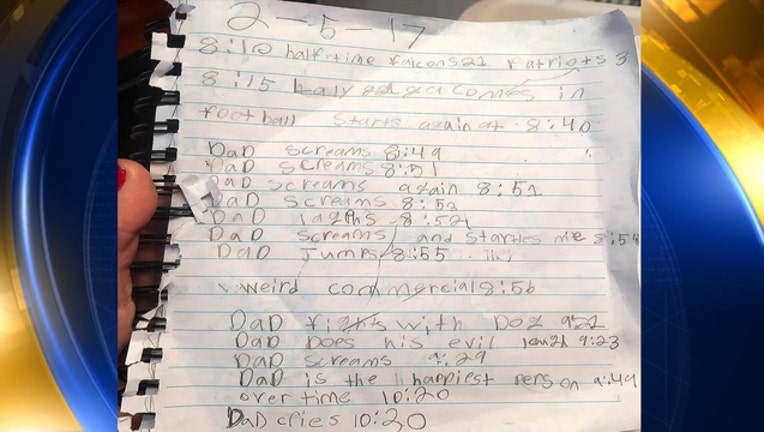 2-5-17
8:10 half-time falcons 21 Patriots 3
8:15 Lady gaga comes in
football starts again at 8:40
DaD screams 8:49
DaD screams 8:51
DaD screams again 8:51
DaD screams 8:53
DaD laghs 8:54
DaD screams and startles me 8:54
DaD Jumps 8:55
weird commercial 8:56
DaD fights with Dog 9:21
DaD Does his evil 9:23
DaD screams 9:29
DaD is the happiest person 9:49
over time 10:20
DaD cries 10:20